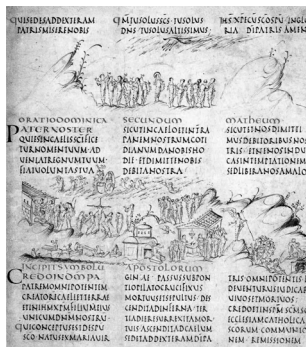 QUISEDESADDEXTERAM
PATRISMISERENOBIS
QMTUSOLUSSCS·TUSOLUS
DNS·TUSOLUSALTISSIMUS·
RIA DIPATRIS AMEN
ORATIODOMINICA
PATERNOSTER
QUIESINCAELISSCIFICE
TURNOMENTUUM·AD
UENIATREGNUMTUUM·
FIATUOLUNTASTUA
SECUNDUM
SICUTINCAELOETINTRA
PANEMNOSTRUMCOTI
DIANUMDANOBISHO
DIE·ETDIMITTENOBIS
DEBITANOSTRA
MATHEUM
SICUTETNOSDIMITTI
MUSDEBITORIBUSNOS
TRIS·ETNENOSINDU
CASINTEMPTATIONEM
SEDLIBERANOSAMALO
INCIPITSYMBOLU
CREDOINDMPA
TREMOMNIPOTENTEM
CREATORECAELIETTERRAE
UNICUMDNMNOSTRU·
QUICONCEPTUSESTDESPU
SCO·NATUSEXMARIAUIR
APOSTOLORUM
GINAE·PASSUSSUBPON
TIOPILATOCRUCIFIXUS
MORTUUSETSEPULTUS·DES
CENDITADINFERNA·TER
TIADIERESURREXITAMOR
TUIS·ASCENDITADCAELUM
SEDITADDEXTERAMDIPA
TRIS OMNIPOTENTIS
UIUOSETMORTUOS·
SCORUM COMMUNIO
NEM REMISSIONE